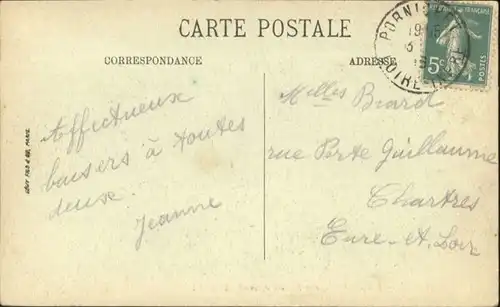 CARTE POSTALE
CORRESPONDANCE
ADRESSE
Affectueux
baisers à toutes
deux.
Jeanne
Melles Biard
rue Porte Guillaume
Chartres
Eure-et-Loir
PORNIC
LOIRE INFRE
5c
POSTES
LÉVY FILS & Cie, PARIS.